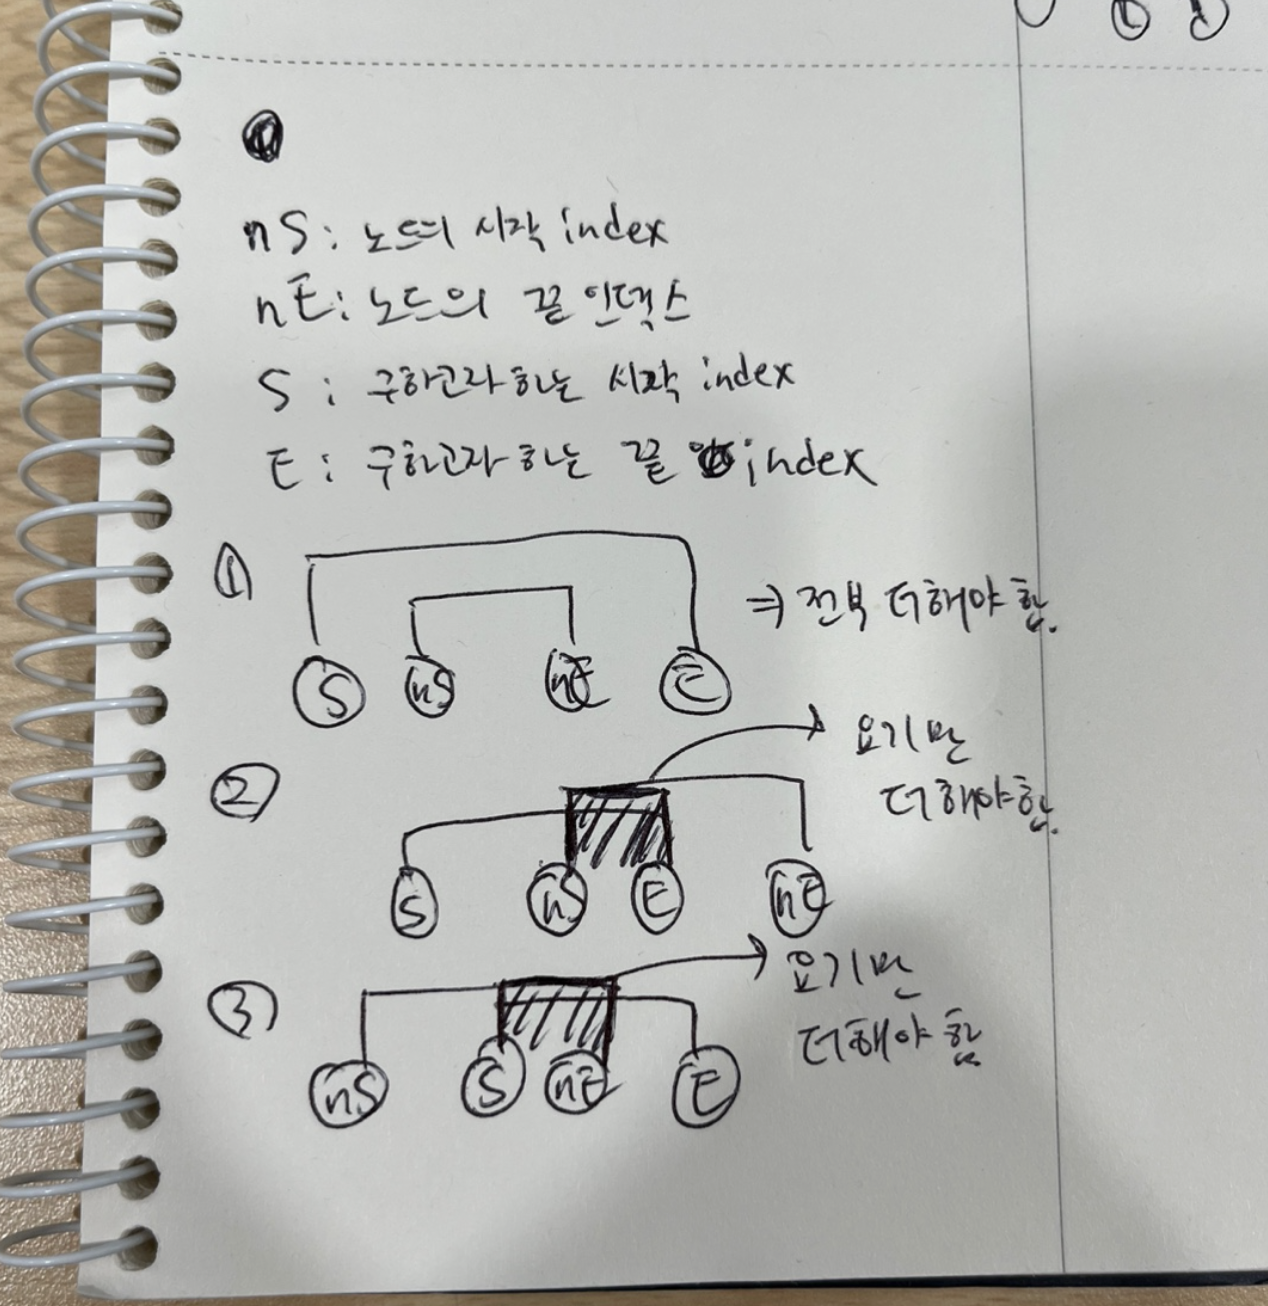 nS : 노드의 시작 index
nE : 노드의 끝 인덱스
S : 구하고자 하는 시작 index
E : 구하고자 하는 끝 index
① ⇒ 전부 더해야 함.
S nS nE E
② 요기만
더해야함.
S nS E nE
③ 요기만
더해야 함
nS S nE E